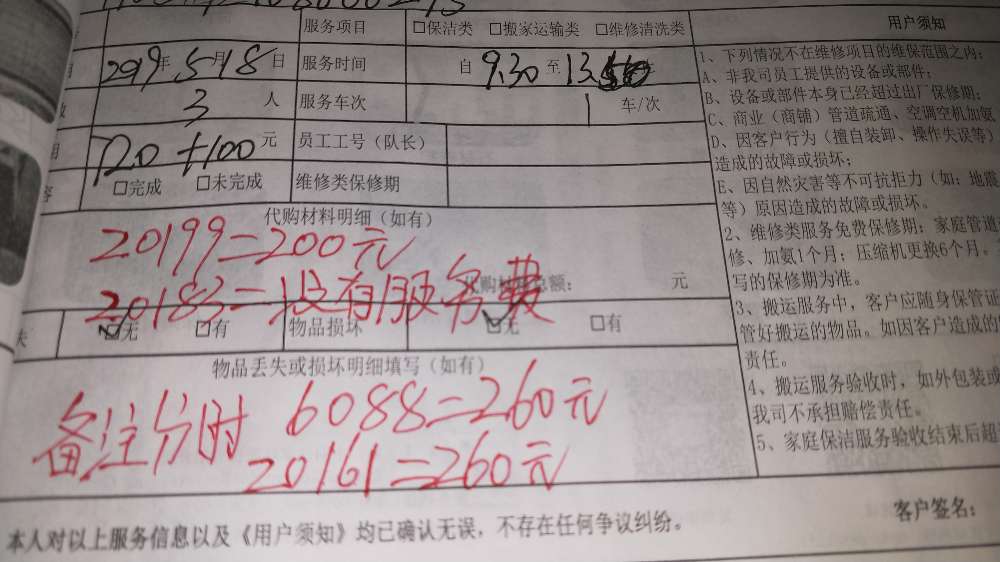 服务项目 □保洁类 □搬家运输类 □维修清洗类
2019年5月18日 服务时间 自 9.30 至 13
3 人 服务车次 1 车/次
720+100 元 员工工号（队长）
□完成 □未完成 维修类保修期
代购材料明细（如有）
20199=200元
代购材料总额： 元
20183=没有服务费
失 ☑无 □有 物品损坏 ☑无 □有
物品丢失或损坏明细填写（如有）
备注分时 6088=260元
20161=260元
用户须知
1、下列情况不在维修项目的维保范围之内：
A、非我司员工提供的设备或部件；
B、设备或部件本身已经超过出厂保修期；
C、商业（商铺）管道疏通、空调空机加氨
D、因客户行为（擅自装卸、操作失误等）
造成的故障或损坏；
E、因自然灾害等不可抗拒力（如：地震
等）原因造成的故障或损坏。
2、维修类服务免费保修期：家庭管道
修、加氨1个月；压缩机更换6个月。
写的保修期为准。
3、搬运服务中，客户应随身保管证
管好搬运的物品。如因客户造成的
责任。
4、搬运服务验收时，如外包装或
我司不承担赔偿责任。
5、家庭保洁服务验收结束后超
本人对以上服务信息以及《用户须知》均已确认无误，不存在任何争议纠纷。 客户签名：